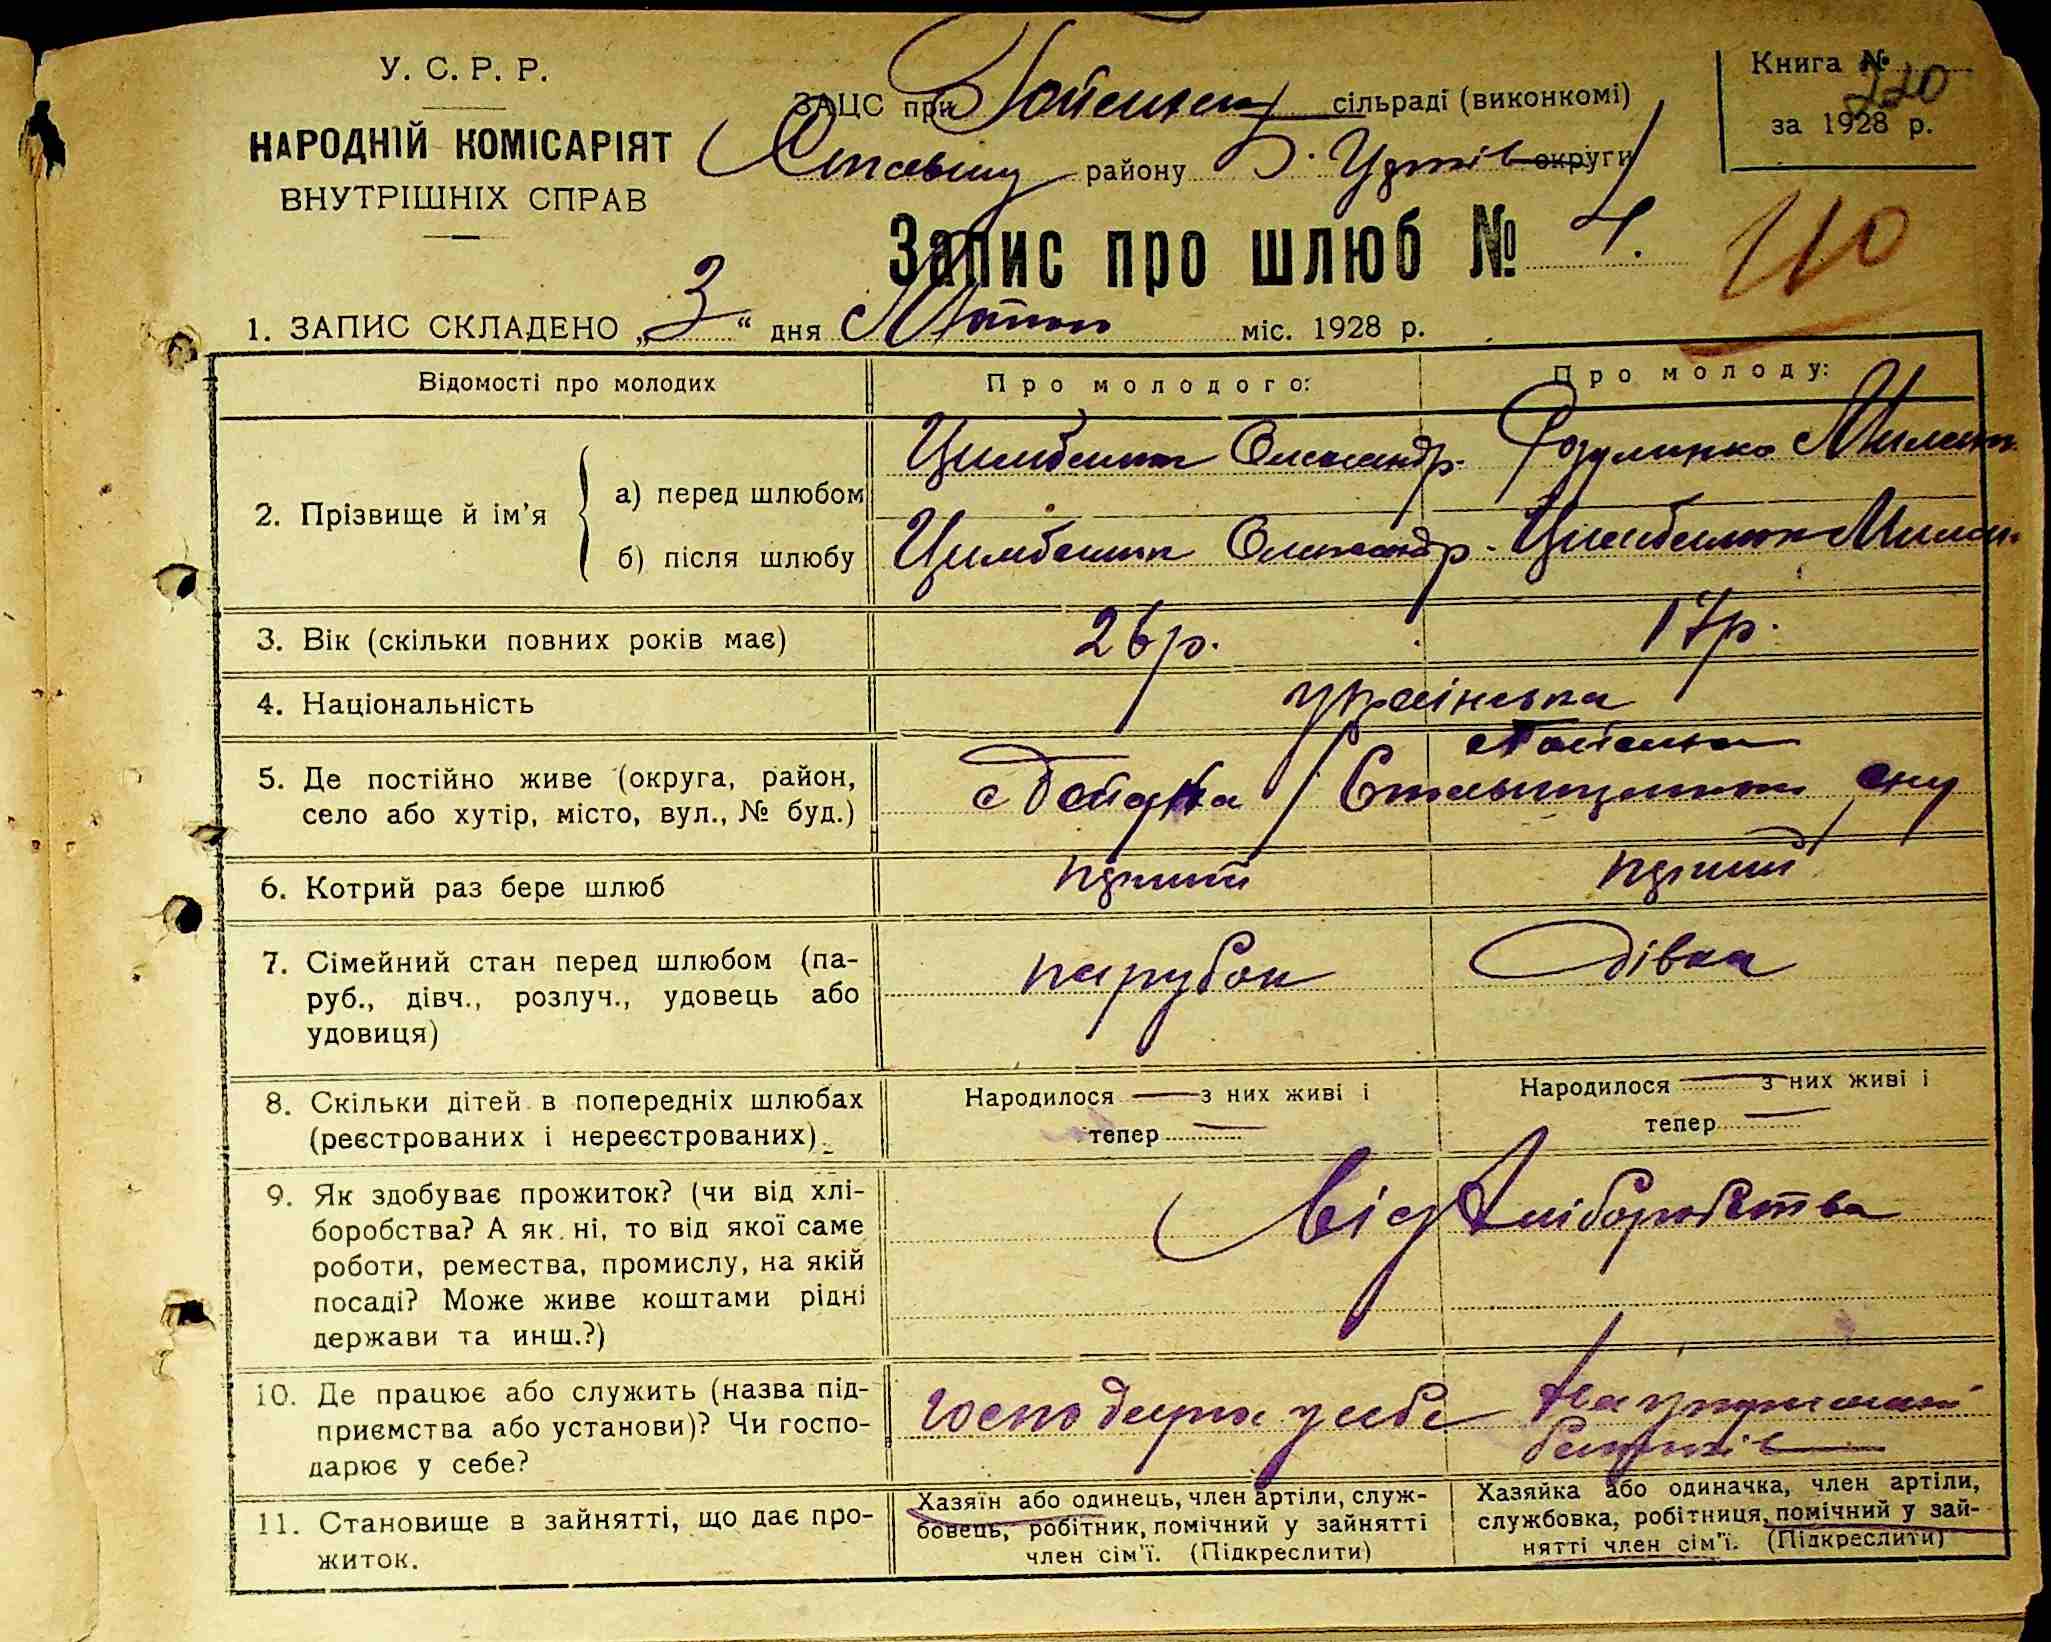 У. С. Р. Р.
НАРОДНІЙ КОМІСАРІЯТ
ВНУТРІШНІХ СПРАВ
ЗАЦС при сільраді (виконкомі)
району округи
Книга № 220
за 1928 р.
Запис про шлюб № 4.
110
1. ЗАПИС СКЛАДЕНО „3“ дня міс. 1928 р.
Відомості про молодих
Про молодого:
Про молоду:
2. Прізвище й ім'я
а) перед шлюбом
Олександр.
б) після шлюбу
Олександр.
3. Вік (скільки повних років має)
26 р.
17 р.
4. Національність
українська
5. Де постійно живе (округа, район,
село або хутір, місто, вул., № буд.)
6. Котрий раз бере шлюб
7. Сімейний стан перед шлюбом (па-
руб., дівч., розлуч., удовець або
удовиця)
парубок
дівка
8. Скільки дітей в попередніх шлюбах
(реєстрованих і нереєстрованих).
Народилося — з них живі і
тепер —
Народилося — з них живі і
тепер —
9. Як здобуває прожиток? (чи від хлі-
боробства? А як ні, то від якої саме
роботи, ремества, промислу, на якій
посаді? Може живе коштами рідні
держави та инш.?)
Від хліборобства
10. Де працює або служить (назва під-
приємства або установи)? Чи госпо-
дарює у себе?
господарює у себе
На утриманні
батьків
11. Становище в зайнятті, що дає про-
житок.
Хазяїн або одинець, член артіли, служ-
бовець, робітник, помічний у зайнятті
член сім'ї. (Підкреслити)
Хазяйка або одиначка, член артіли,
службовка, робітниця, помічний у зай-
нятті член сім'ї. (Підкреслити)